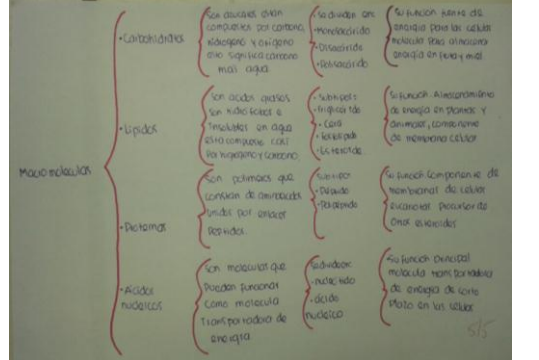 Macromoleculas
• Carbohidratos
Son azucares estan
compuestos por carbono,
hidrogeno y oxigeno
esto significa carbono
mas agua
Se dividen en:
• Monosacárido
• Disacárido
• Polisacárido
Su función fuente de
energia para las celulas
energía en
• Lipidos
Son acidos grasos
son hidrofobos e
Insolubles en agua
esta compuesto casi
Por hidrogeno y carbono.
• Subtipos:
• Trigliceridо
• Cera
• Esteroide
Su función: Almacenamiento
de energia en plantas y
animales, componente
de membrana celular
• Proteinas
Son polimeros que
constan de aminoacidos
unidos por enlaces
Peptidos.
Subtipos
• Péptido
• Polipéptido
Su función componente de
membranas de celulas
eucariotas precursor de
otros esteroides
• Acidos
nucleicos
Son moleculas que
Pueden funcionar
como molecula
Transportadora de
energia
Se dividen:
• nucleótido
• ácido
nucleico
Su función principal
molécula transportadora
de energia de corto
Plazo en las celulas
5/5